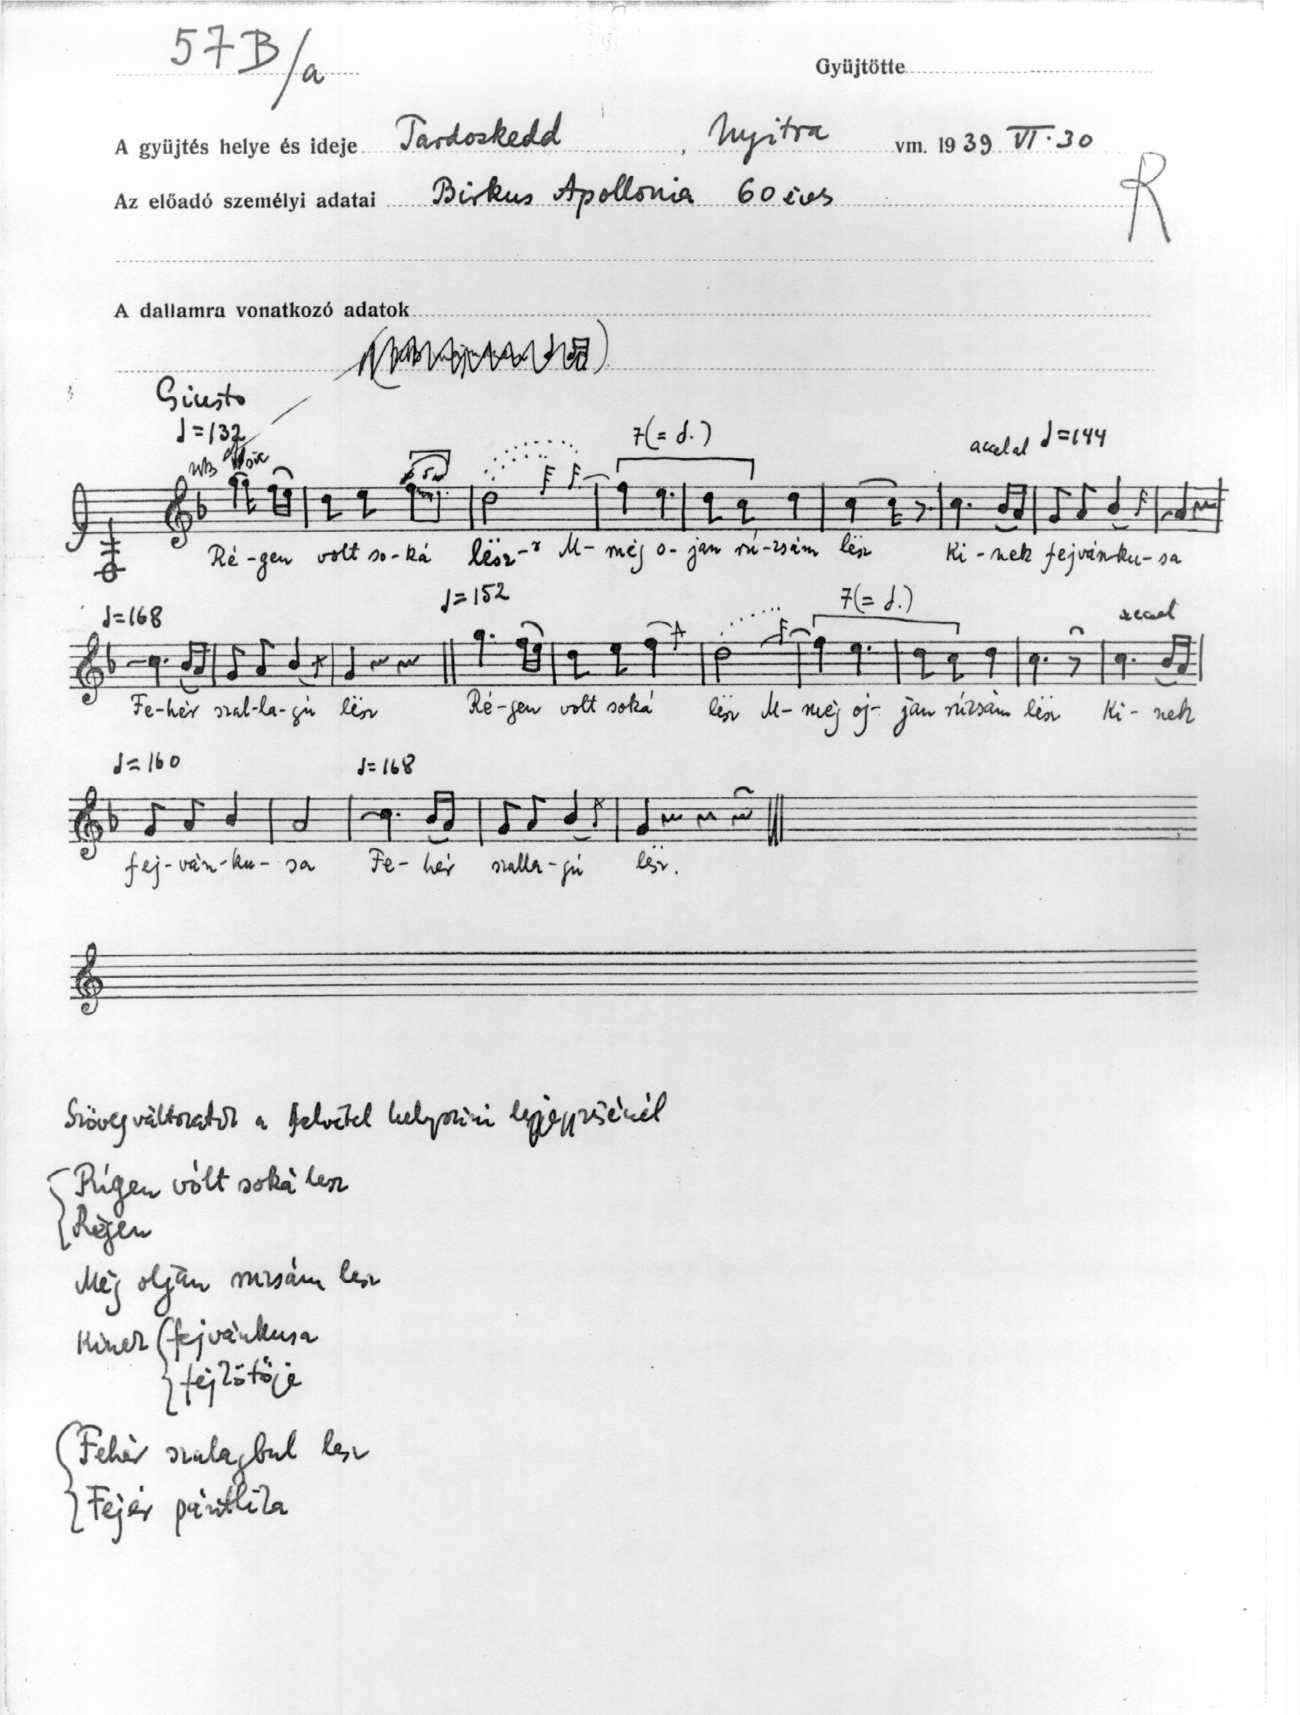 57B/a
Gyüjtötte
A gyüjtés helye és ideje Tardoskedd, Nyitra vm. 1939 VI. 30
Az előadó személyi adatai Birkus Apollonia 60 éves
R
A dallamra vonatkozó adatok
Giusto
♩=132
7(=♩.)
♩=144
Ré-gen volt so-ká lësz-r M- még o-jan rú-zsám lësz Ki-nek fejvánku-sa
♩=168
♩=152
7(=♩.)
accel
Fe-hér szal-la-gú lësz Ré-gen volt soká lësz M- még oj-jan rúzsám lësz Ki-nek
♩=160
♩=168
fej-ván-ku-sa Fe-hér szalla-gú lësz.
Szövegváltozatok a felvétel helyszíni lejegyzésénél
Rígen vólt soká lesz
Régen
Még olján ruzsám lesz
Kinek fejvánkusa
fejkötője
Fehér szalagbul lesz
Fejér pántlika